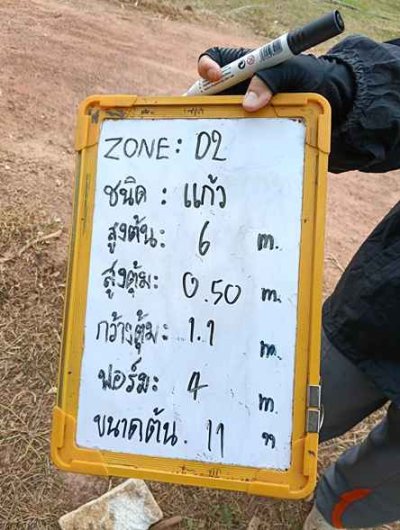 ZONE: D2
ชนิด : แก้ว
สูงต้น: 6 m.
สูงตุ้ม: 0.50 m.
กว้างตุ้ม: 1.1 m.
ฟอร์ม: 4 m.
ขนาดต้น. 11 "